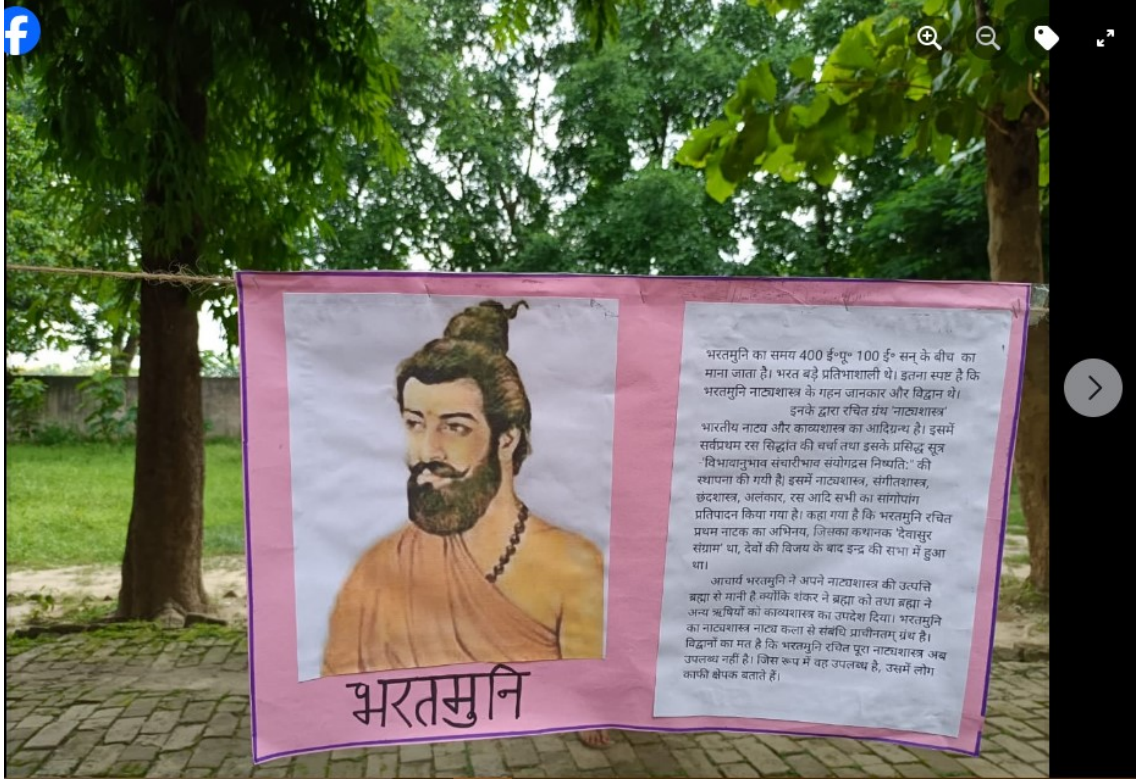 भरतमुनि
भरतमुनि का समय 400 ई॰पू॰ 100 ई॰ सन् के बीच का
माना जाता है। भरत बड़े प्रतिभाशाली थे। इतना स्पष्ट है कि
भरतमुनि नाट्यशास्त्र के गहन जानकार और विद्वान थे।
इनके द्वारा रचित ग्रंथ 'नाट्यशास्त्र'
भारतीय नाट्य और काव्यशास्त्र का आदिग्रन्थ है। इसमें
सर्वप्रथम रस सिद्धांत की चर्चा तथा इसके प्रसिद्ध सूत्र
-'विभावानुभाव संचारीभाव संयोगद्रस निष्पति:" की
स्थापना की गयी है| इसमें नाट्यशास्त्र, संगीतशास्त्र,
छंदशास्त्र, अलंकार, रस आदि सभी का सांगोपांग
प्रतिपादन किया गया है। कहा गया है कि भरतमुनि रचित
प्रथम नाटक का अभिनय, जिसका कथानक 'देवासुर
संग्राम' था, देवों की विजय के बाद इन्द्र की सभा में हुआ
था।
आचार्य भरतमुनि ने अपने नाट्यशास्त्र की उत्पत्ति
ब्रह्मा से मानी है क्योंकि शंकर ने ब्रह्मा को तथा ब्रह्मा ने
अन्य ऋषियों को काव्यशास्त्र का उपदेश दिया। भरतमुनि
का नाट्यशास्त्र नाट्य कला से संबंधि प्राचीनतम् ग्रंथ है।
विद्वानों का मत है कि भरतमुनि रचित पूरा नाट्यशास्त्र अब
उपलब्ध नहीं है। जिस रूप में वह उपलब्ध है, उसमें लोग
काफी क्षेपक बताते हैं।